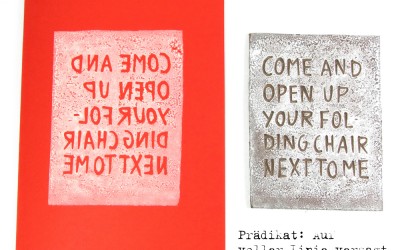 COME AND
OPEN UP
YOUR FOL-
DING CHAIR
NEXT TO ME
COME AND
OPEN UP
YOUR FOL-
DING CHAIR
NEXT TO ME
Prädikat: Auf
voller Linie versagt